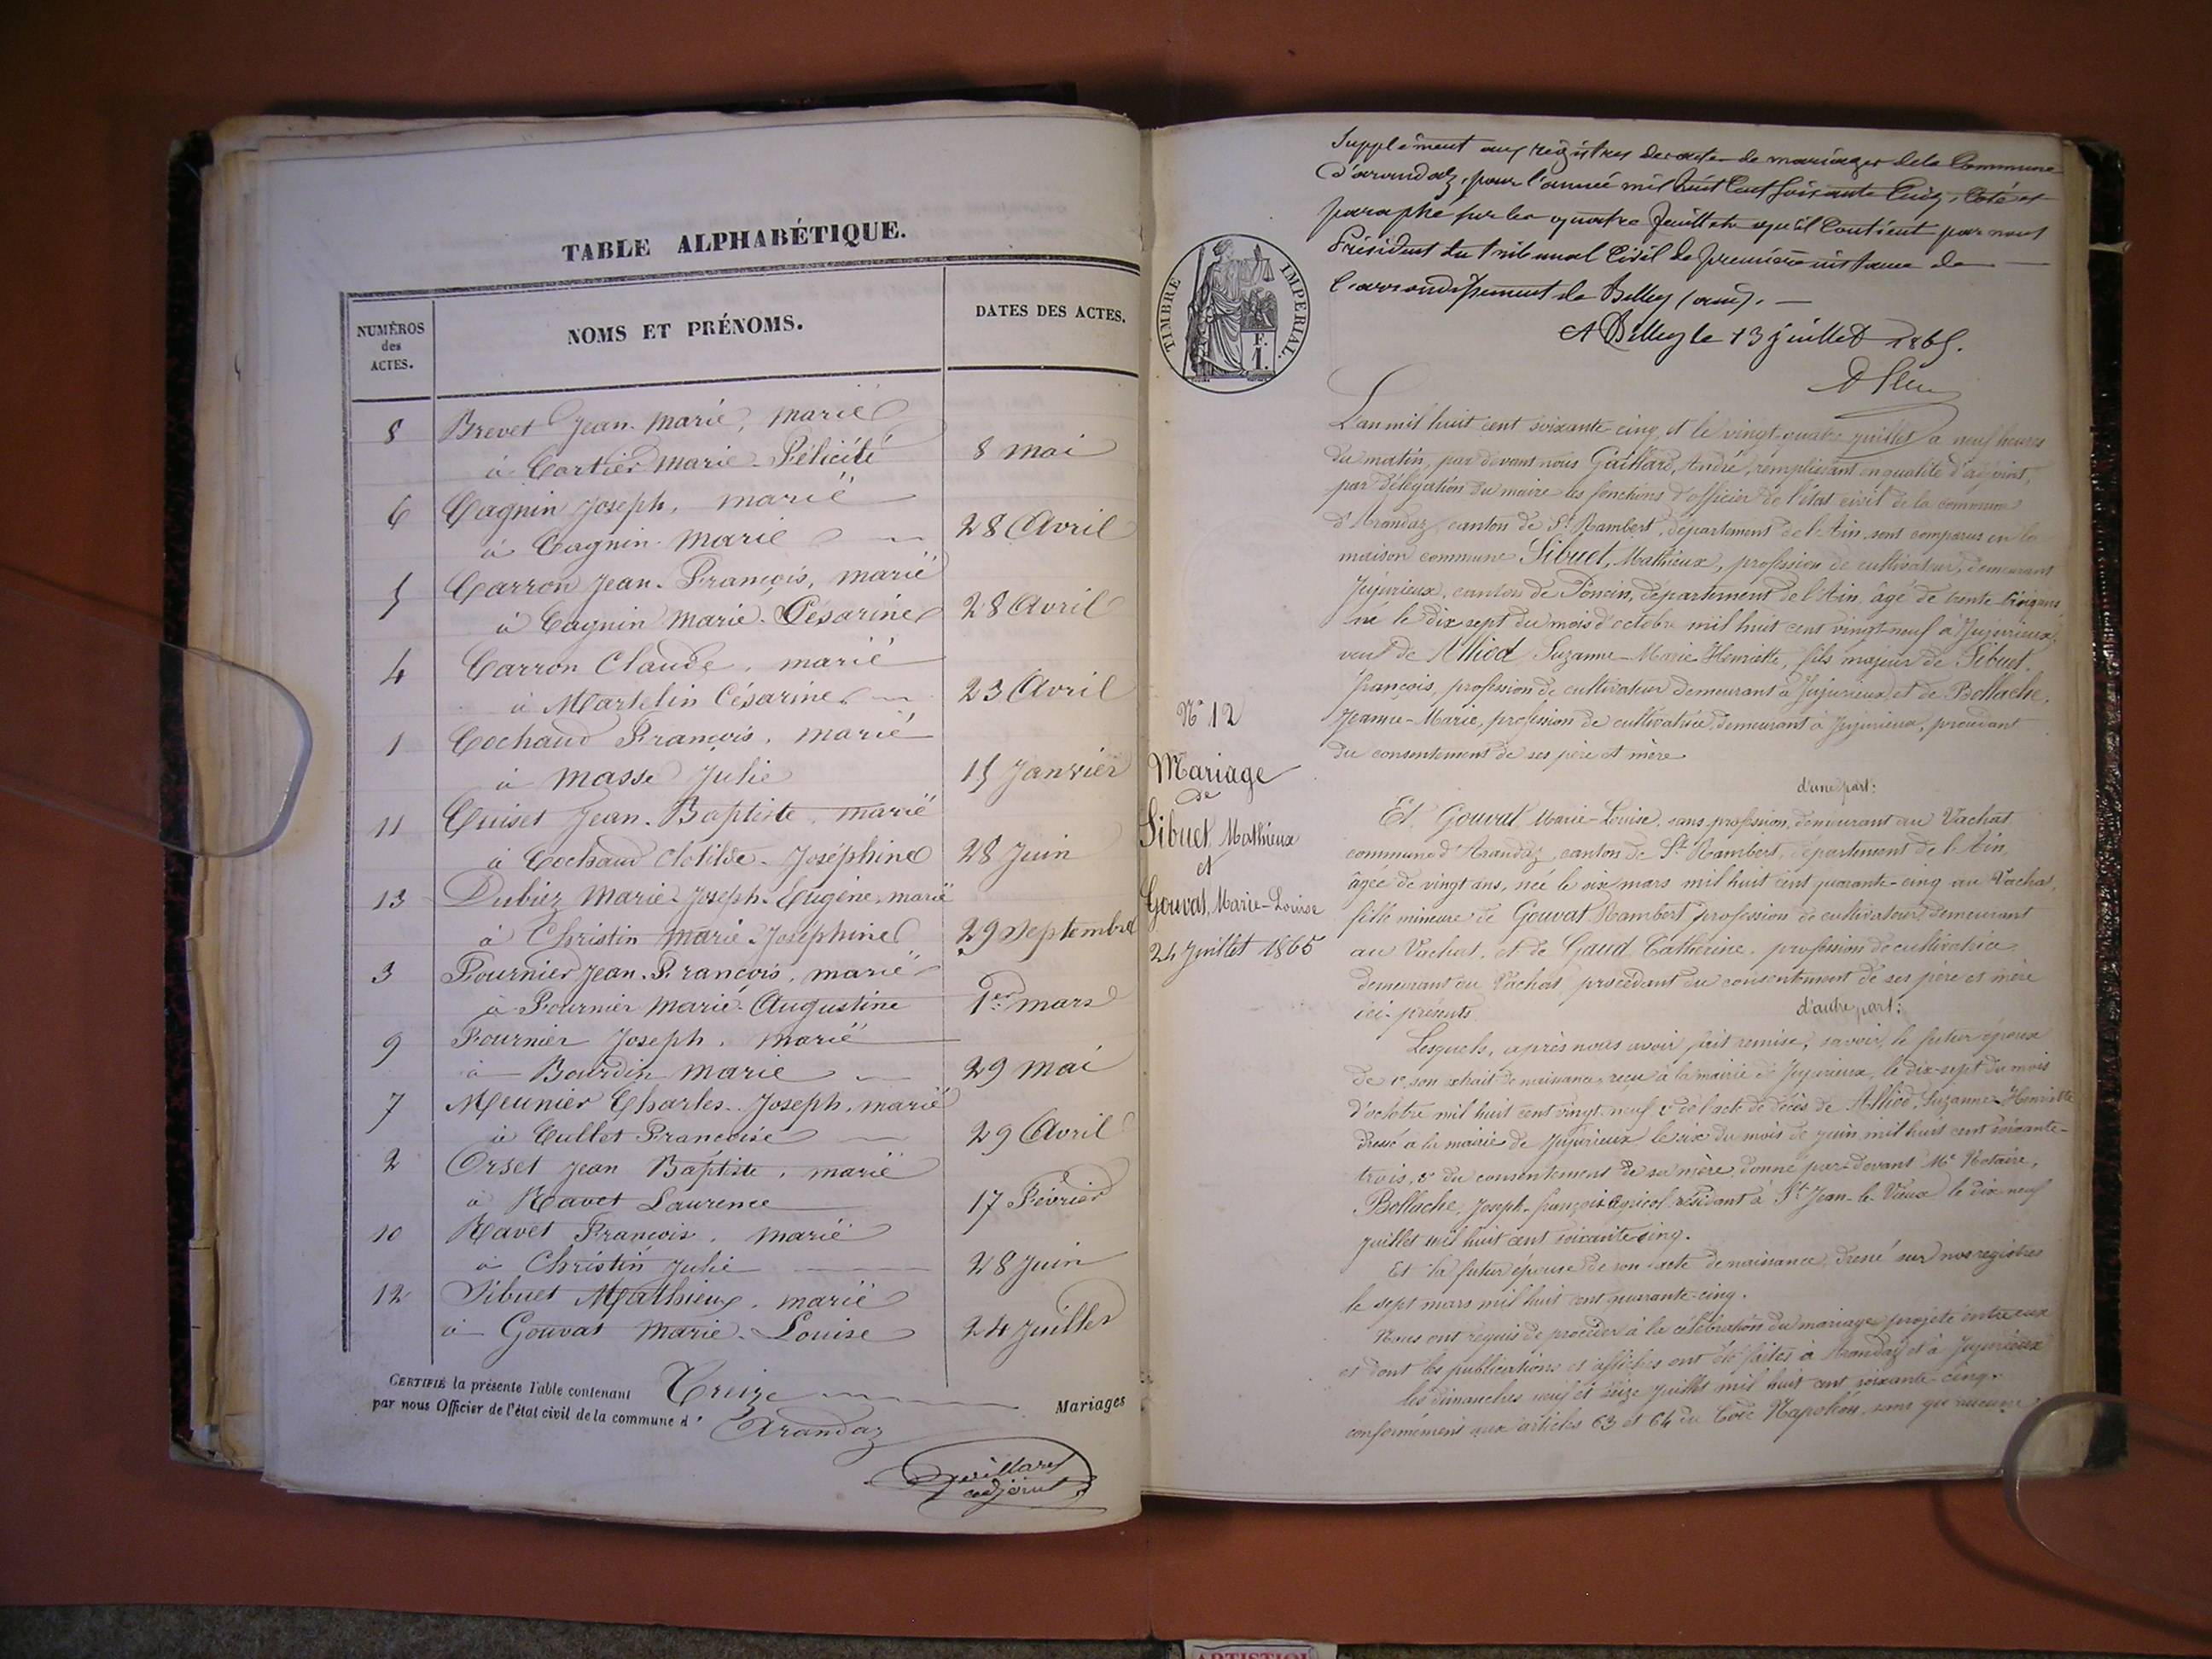 TABLE ALPHABÉTIQUE.
NUMÉROS
des
ACTES.
NOMS ET PRÉNOMS.
DATES DES ACTES.
8 Brevet Jean-Marie, marié
à Cartier Marie-Félicité 8 mai
6 Cagnin Joseph, marié
à Cagnin Marie 28 Avril
5 Carron Jean-François, marié
à Cagnin Marie-Césarine 28 Avril
4 Carron Claude, marié
à Martelin Césarine 23 Avril
1 Cochaud François, marié
à Masse Julie 15 Janvier
11 Cuiset Jean-Baptiste, marié
à Cochaud Clotilde-Joséphine 28 Juin
13 Dubiez Marie-Joseph-Eugène, marié
à Christin Marie-Joséphine 29 Septembre
3 Fournier Jean-François, marié
à Fournier Marie-Augustine 1er mars
9 Fournier Joseph, marié
à Bourdin Marie 29 mai
7 Meunier Charles-Joseph, marié
à Cullet Françoise 29 Avril
2 Orset Jean Baptiste, marié
à Ravet Laurence 17 Février
10 Ravet François, marié
à Christin Julie 28 Juin
12 Sibuet Mathieux, marié
à Gouvat Marie-Louise 24 Juillet
CERTIFIÉ la présente Table contenant Treize Mariages
par nous Officier de l'état civil de la commune d' Arandaz
Guillard
adjoint
Supplément aux registres des actes de mariages de la Commune
d'arandaz, pour l'année mil huit Cent Soixante Cinq, Coté et
paraphé sur les quatre feuillets qu'il Contient par nous
Président du tribunal Civil de première instance de
l'arrondissement de Belley (ain). —
A Belley le 13 juillet 1865.
TIMBRE IMPÉRIAL.
1 F.
N° 12
Mariage
de
Sibuet Mathieux
et
Gouvat, Marie-Louise
24 Juillet 1865
L'an mil huit cent soixante cinq, et le vingt-quatre juillet à neuf heures
du matin, par devant nous Gaillard, André, remplissant en qualité d'adjoint,
par délégation du maire les fonctions d'officier de l'état civil de la commune
d'Arandaz, canton de St Rambert, département de l'Ain, sont comparus en la
maison commune Sibuet, Mathieux, profession de cultivateur, demeurant
Jujurieux, canton de Poncin, département de l'Ain, âgé de trente-cinq ans
né le dix sept du mois d'octobre mil huit cent vingt-neuf à Jujurieux,
veuf de Alliod Suzanne-Marie Henriette, fils majeur de Sibuet,
françois, profession de cultivateur demeurant à Jujurieux, et de Bollache,
Jeanne-Marie, profession de cultivatrice, demeurant à Jujurieux, procédant
du consentement de ses père et mère
d'une part:
Et Gouvat Marie-Louise, sans profession, demeurant au Vachat
commune d'Arandaz, canton de St Rambert, département de l'Ain,
âgée de vingt ans, née le six mars mil huit cent quarante-cinq au Vachat,
fille mineure de Gouvat Rambert profession de cultivateur demeurant
au Vachat, et de Gaud Catherine, profession de cultivatrice
demeurant au Vachat, procédant du consentement de ses père et mère
ici présents.
d'autre part:
Lesquels, après nous avoir fait remise, savoir, le futur époux
de 1° son extrait de naissance, reçu à la mairie de Jujurieux, le dix-sept du mois
d'octobre mil huit cent vingt-neuf, 2° de l'acte de décès de Alliod, Suzanne-Henriette
dressé à la mairie de Jujurieux le six du mois de juin mil huit cent soixante-
trois, 3° du consentement de sa mère donné par-devant Me Notaire,
Bollache, Joseph-françois Agricol résidant à St Jean-le-Vieux le dix-neuf
juillet mil huit cent soixante cinq.
Et la futur épouse de son acte de naissance, dressé sur nos registres
le sept mars mil huit cent quarante-cinq.
Nous ont requis de procéder à la célébration du mariage projeté entre eux
et dont les publications et affiches ont été faites à Arandaz et à Jujurieux
les dimanches neuf et seize juillet mil huit cent soixante-cinq.
conformément aux articles 63 et 64 du Code Napoléon, sans que aucune